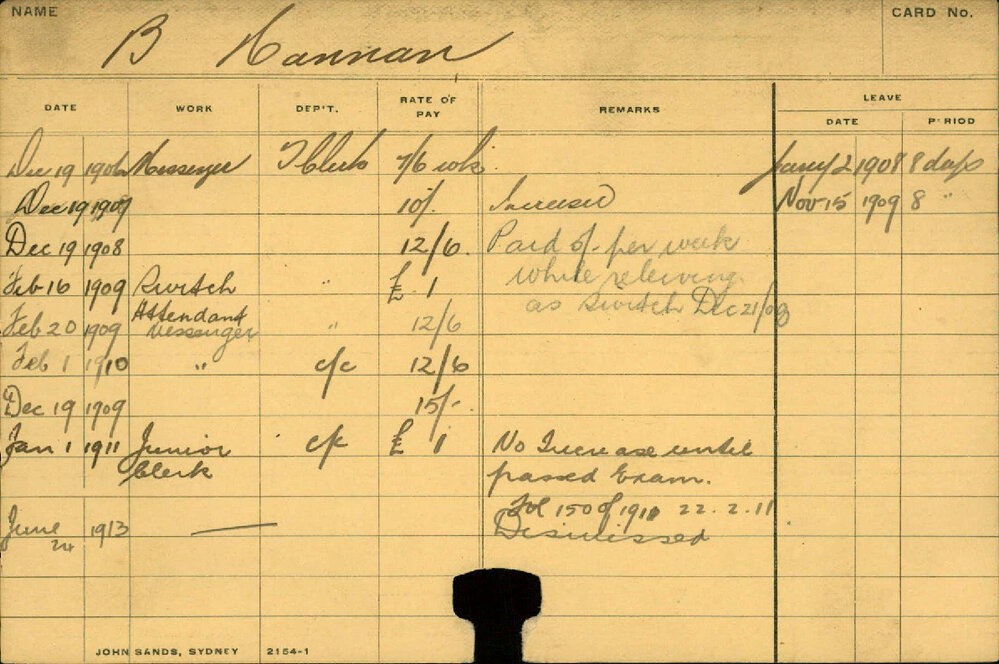 NAME
CARD No.
B Hannan
DATE WORK DEP'T. RATE OF PAY REMARKS LEAVE
DATE PERIOD
Dec 19 1906 Messenger T Clerk 7/6 wk. Jany 2 1908 8 days
Dec 19 1907 10/. Increased Nov 15 1909 8 "
Dec 19 1908 12/6. Paid of per week
while releiving
Feb 16 1909 Switch " £ 1
as Switch Dec 21/08
Attendant
Feb 20 1909 Messenger " 12/6
Feb 1 1910 " c/c 12/6
Dec 19 1909 15/-.
Jan 1 1911 Junior c/c £ 1 No Increase until
Clerk passed Exam.
Fol 150 of 1911 22.2.11
June 24 1913 — Dismissed
JOHN SANDS, SYDNEY 2154-1